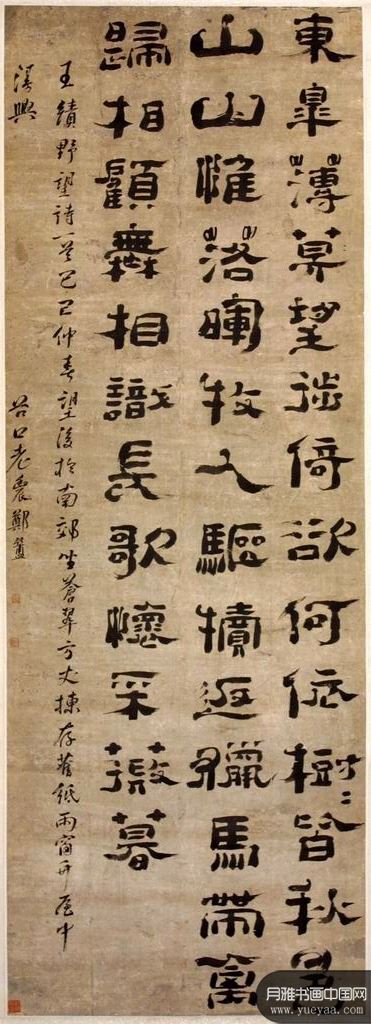 東皐薄莫望徙倚欲何依樹〻皆秋色
山山惟落暉牧人驅犢返獵馬帶禽
歸相顧橆相識長歌懷采薇暮
王績野望詩一首己巳仲春望後於南郊坐蒼翠方丈揀存舊紙雨窗中
漫興 谷口老農鄭簠
月雅书画中国网
www.yueyaa.com